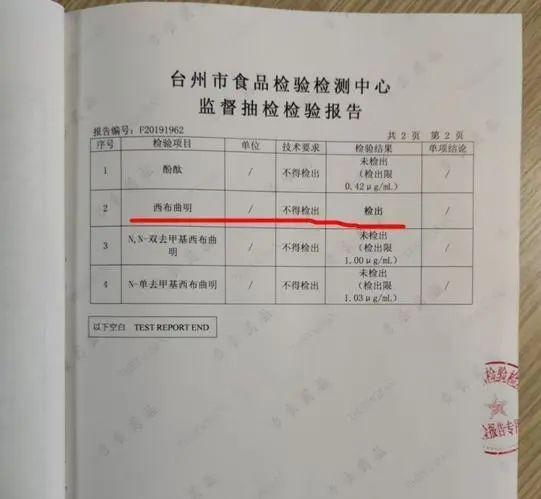 台州市食品检验检测中心
监督抽检检验报告
报告编号: F20191962
共 2 页 第 2 页
序号 检验项目 单位 技术要求 检验结果 单项结论
1 酚酞 / 不得检出 未检出 (检出限 0.42μg/mL) /
2 西布曲明 / 不得检出 检出 /
3 N,N-双去甲基西布曲明 / 不得检出 未检出 (检出限 1.00μg/mL) /
4 N-单去甲基西布曲明 / 不得检出 未检出 (检出限 1.03μg/mL) /
以下空白 TEST REPORT END
检验检